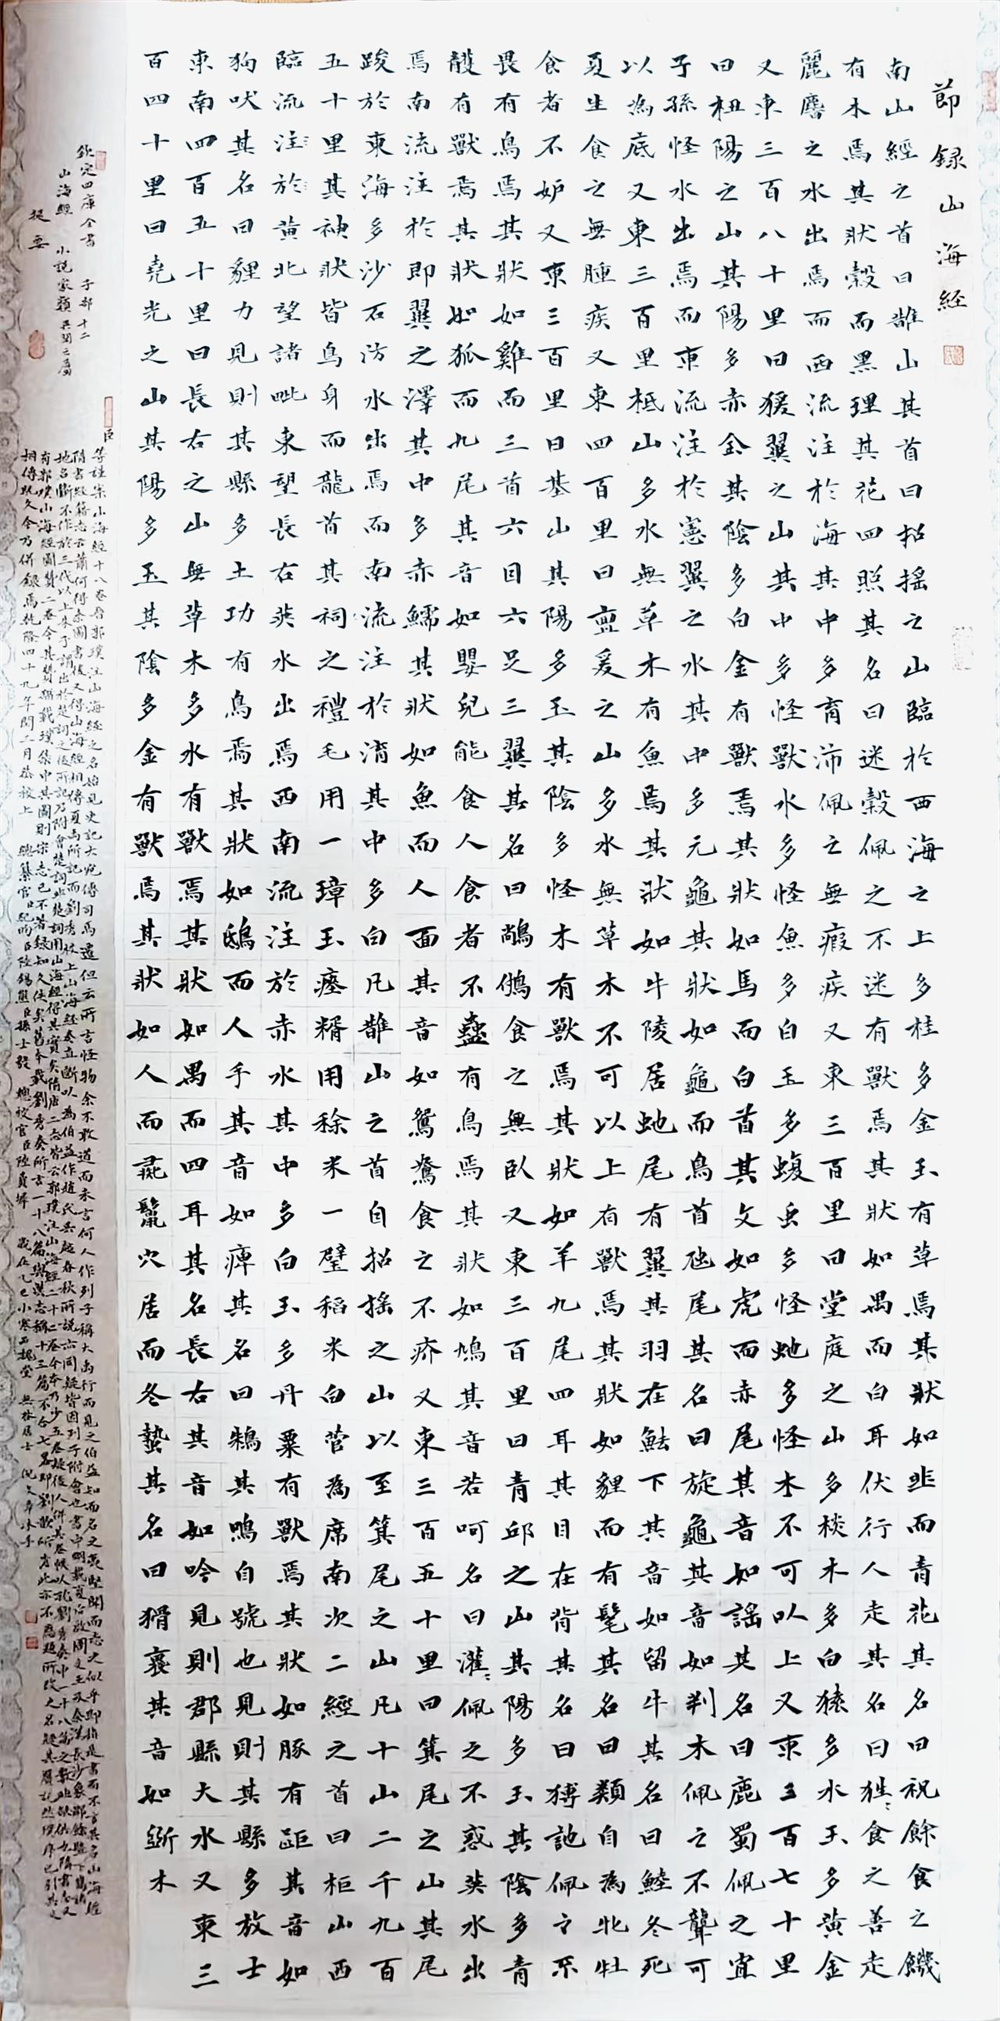 節録山海経
南山經之首曰䧿山其首曰招搖之山臨於西海之上多桂多金玉有草焉其狀如韭而青花其名曰祝餘食之饑
有木焉其狀榖而黑理其花四照其名曰迷榖佩之不迷有獸焉其狀如禺而白耳伏行人走其名曰狌〻食之善走
麗𪊨之水出焉而西流注於海其中多育沛佩之無瘕疾又東三百里曰堂庭之山多棪木多白猿多水玉多黃金
又東三百八十里曰猨翼之山其中多怪獸水多怪魚多白玉多蝮虫多怪蛇多怪木不可以上又東三百七十里
曰杻陽之山其陽多赤金其陰多白金有獸焉其狀如馬而白首其文如虎而赤尾其音如謠其名曰鹿蜀佩之宜
子孫怪水出焉而東流注於憲翼之水其中多元龜其狀如龜而鳥首虺尾其名曰旋龜其音如判木佩之不聾可
以為底又東三百里柢山多水無草木有魚焉其狀如牛陵居蛇尾有翼其羽在魼下其音如留牛其名曰鯥冬死
夏生食之無腫疾又東四百里曰亶爰之山多水無草木不可以上有獸焉其狀如貍而有髦其名曰類自為牝牡
食者不妒又東三百里曰基山其陽多玉其陰多怪木有獸焉其狀如羊九尾四耳其目在背其名曰猼訑佩之不
畏有鳥焉其狀如雞而三首六目六足三翼其名曰食之無臥又東三百里曰青邱之山其陽多玉其陰多青
雘有獸焉其狀如狐而九尾其音如嬰兒能食人食者不蠱有鳥焉其狀如鳩其音若呵名曰灌〻佩之不惑英水出
焉南流注於即翼之澤其中多赤鱬其狀如魚而人面其音如鴛鴦食之不疥又東三百五十里曰箕尾之山其尾
踆於東海多沙石汸水出焉而南流注於淯其中多白凡䧿山之首自招搖之山以至箕尾之山凡十山二千九百
五十里其神狀皆鳥身而龍首其祠之禮毛用一璋玉瘞糈用稌米一璧稻米白菅為席南次二經之首曰柜山西
臨流注於黃北望諸毗東望長右英水出焉西南流注於赤水其中多白玉多丹粟有獸焉其狀如豚有距其音如
狗吠其名曰貍力見則其縣多土功有鳥焉其狀如鴟而人手其音如痺其名曰鴸其鳴自號也見則其縣多放士
東南四百五十里曰長右之山無草木多水有獸焉其狀如禺而四耳其名長右其音如吟見則郡縣大水又東三
百四十里曰堯光之山其陽多玉其陰多金有獸焉其狀如人而彘鬣穴居而冬蟄其名曰猾褢其音如斲木
欽定四庫全書 子部十二
山海經 小說家類異聞之屬
提要
臣等謹案山海經十八卷晉郭璞注山海經之名始見史記大宛傳司馬遷但云所言怪物余不敢道而未言何人作列子稱大禹行而見之伯益知而名之夷堅聞而志之似乎即指是書而不言其名山海經
隋書經籍志云蕭何得秦圖書後又得山海經相傳夏禹所記
相傳既久今乃併錄焉乾隆四十九年閏三月恭校上 總纂官臣紀昀臣陸錫熊臣孫士毅 總校官臣陸費墀 歲在乙巳小寒